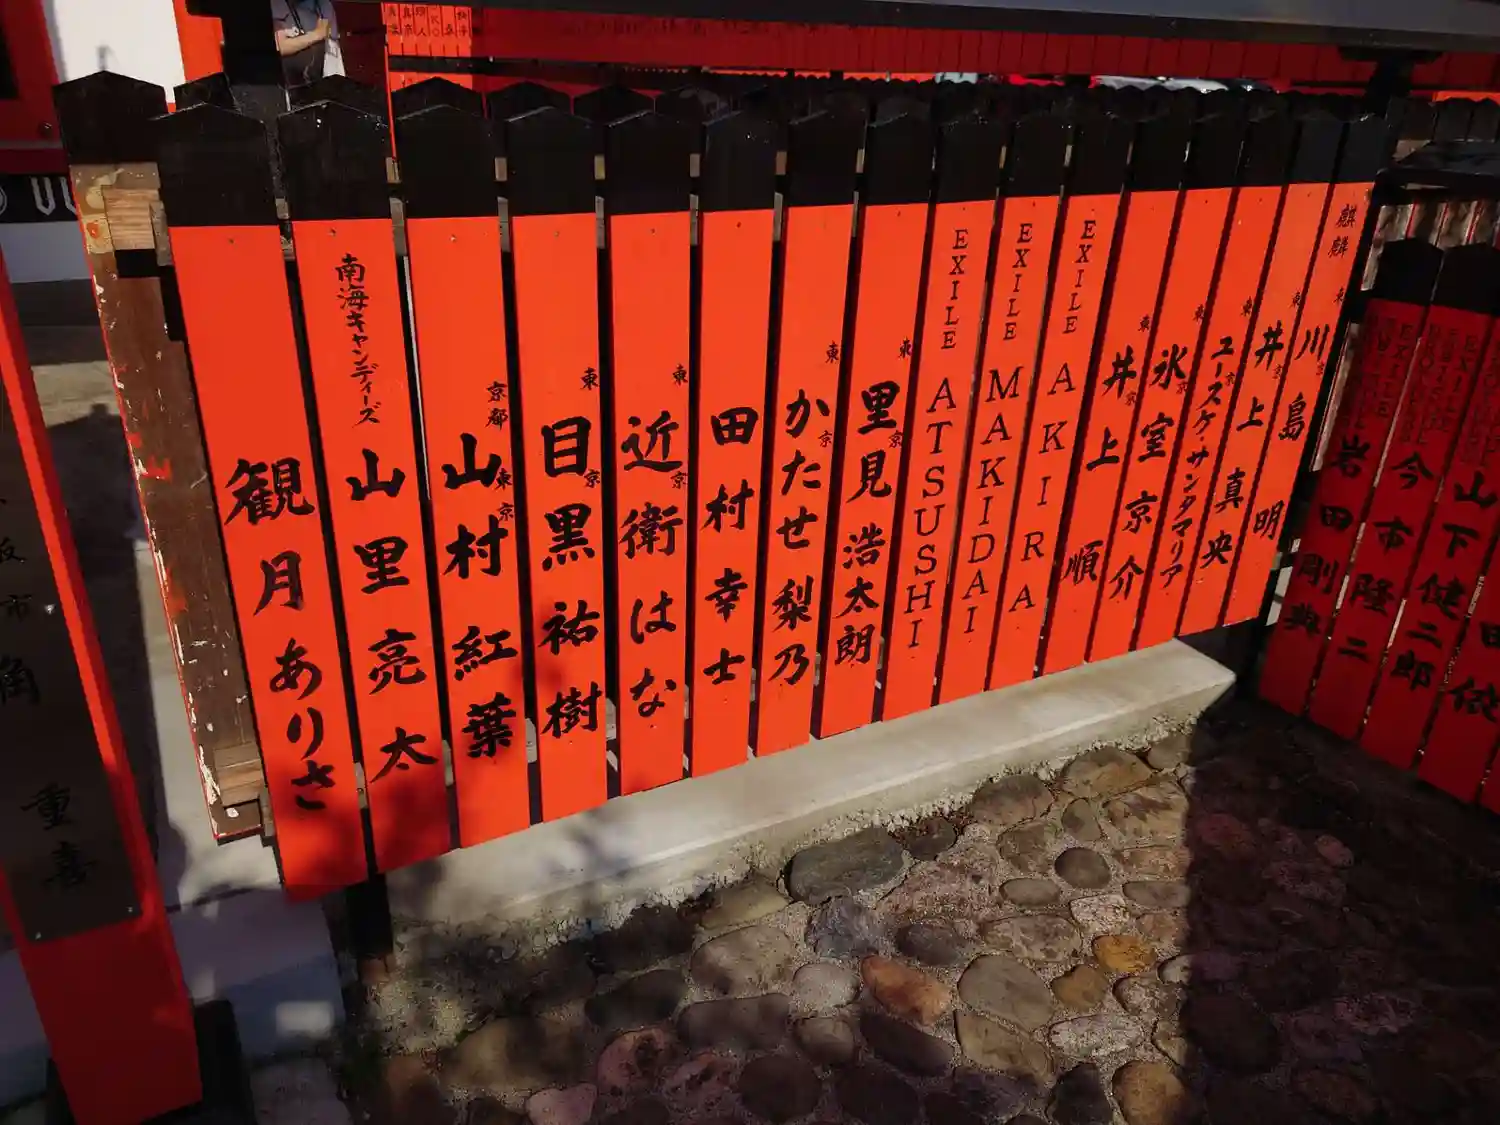 観月ありさ
南海キャンディーズ 山里亮太
京都 山村紅葉
東京 目黒祐樹
東京 近衛はな
東京 田村幸士
かたせ梨乃
東京 里見浩太朗
東京
EXILE ATSUSHI
EXILE MAKIDAI
EXILE AKIRA
井上順
東京 氷室京介
東京 ユースケ・サンタマリア
東京 井上真央
東京 麒麟 川島明
東京
岩田剛典
今市隆二
山下健二郎
重喜